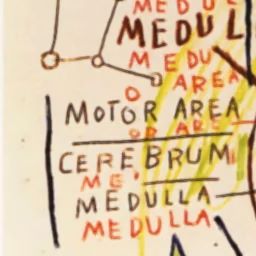 MEDUL
MEDUL
MEDU
O AREA
MOTOR AREA
OR ARE
CEREBRUM
ME
MEDULLA
MEDULLA